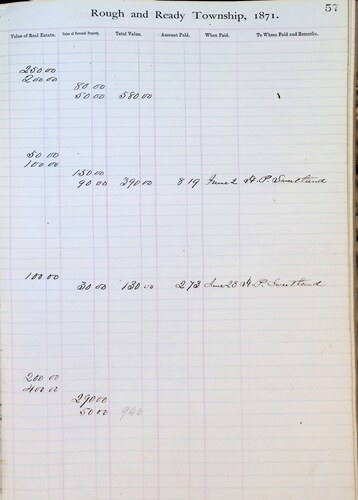 57
Rough and Ready Township, 1871.
Value of Real Estate. Value of Personal Property. Total Value. Amount Paid. When Paid. To Whom Paid and Remarks.
250 00
200 00
80 00
50 00 580 00
50 00
100 00
150 00
90 00 390 00 8 19 June 2 H. P. Sweetland
100 00
30 00 130 00 2 73 June 23 H. P. Sweetland
200 00
400 00
290 00
50 00 940